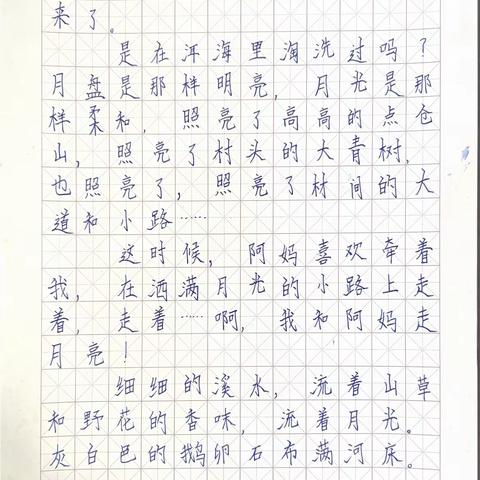 来了。
是在洱海里淘洗过吗？
月盘是那样明亮，月光是那
样柔和，照亮了高高的点仓
山，照亮了村头的大青树，
也照亮了，照亮了材间的大
道和小路……
这时候，阿妈喜欢牵着
我，在洒满月光的小路上走
着，走着……啊，我和阿妈走
月亮！
细细的溪水，流着山草
和野花的香味，流着月光。
灰白色的鹅卵石布满河床。